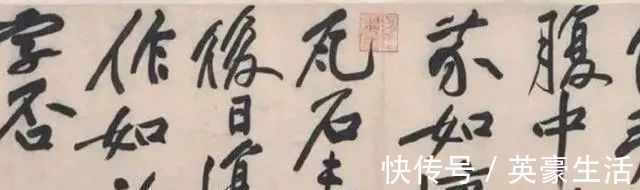 腹中
芥如
瓦石
後日
作如
字否
快传号 / 英豪生活